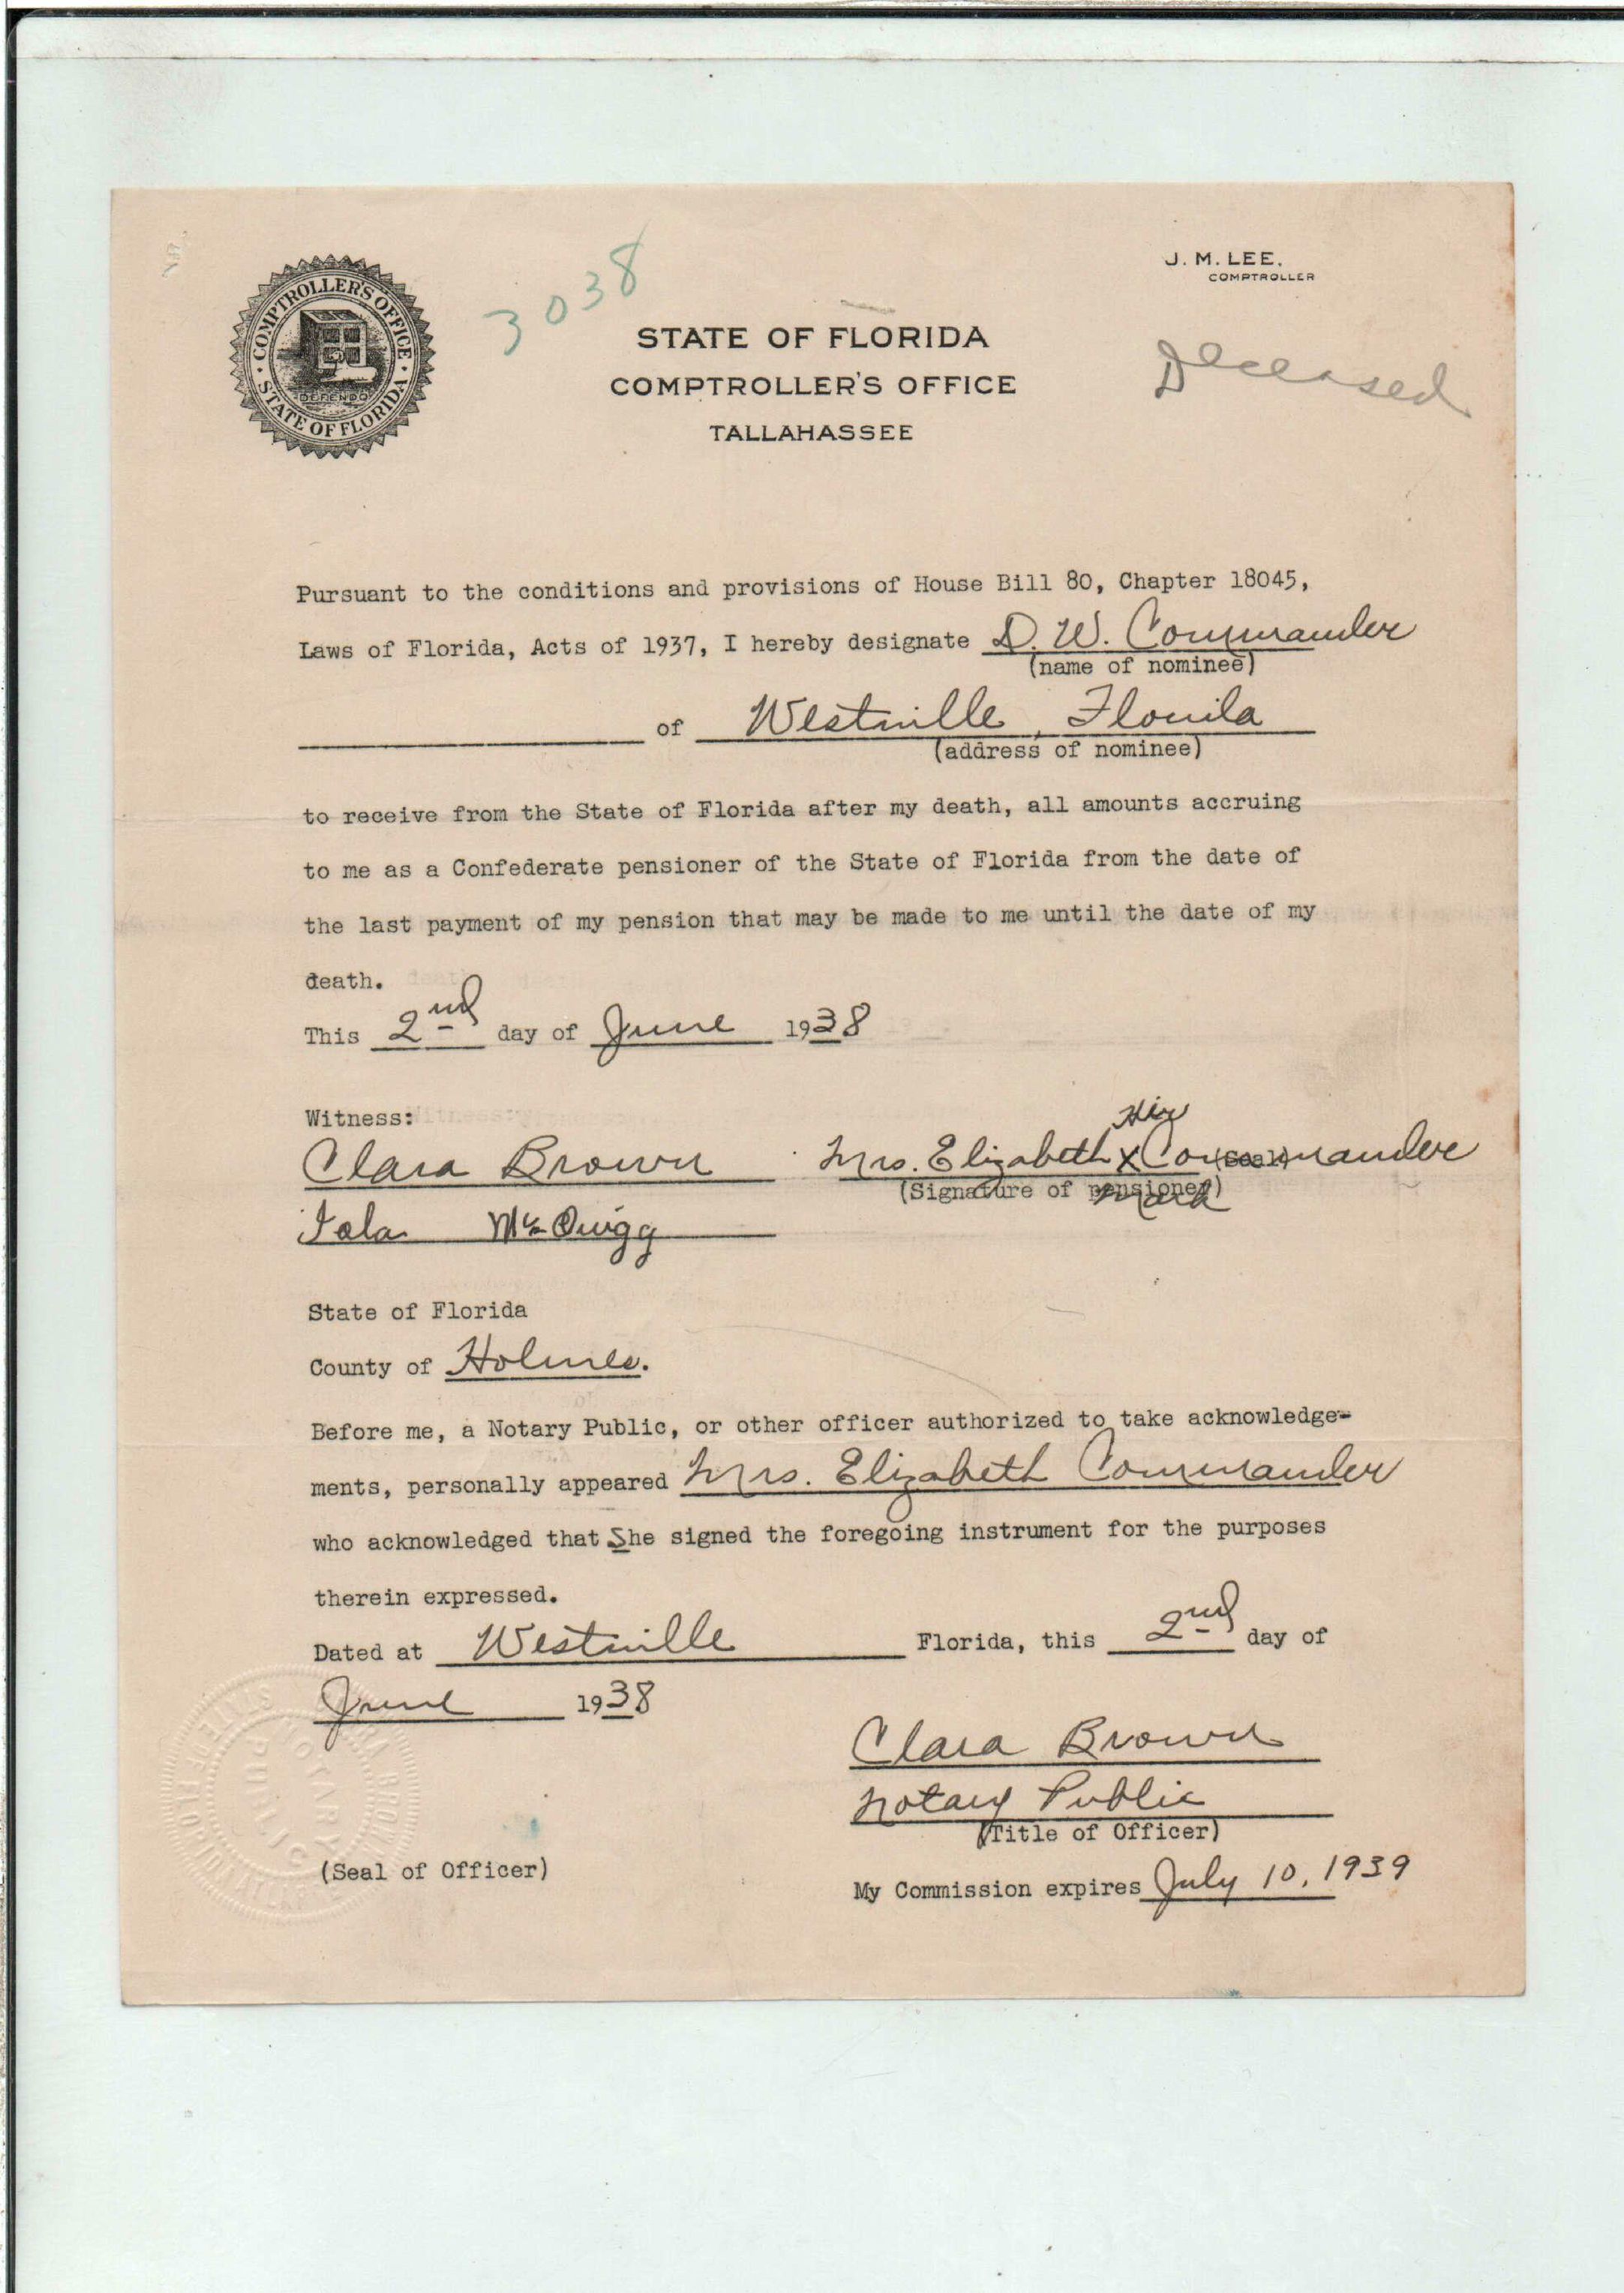 J. M. LEE,
COMPTROLLER
COMPTROLLER'S OFFICE
STATE OF FLORIDA
3038
STATE OF FLORIDA
COMPTROLLER'S OFFICE
TALLAHASSEE
Deceased
Pursuant to the conditions and provisions of House Bill 80, Chapter 18045,
Laws of Florida, Acts of 1937, I hereby designate D. W. Commander
(name of nominee)
of Westville, Florida
(address of nominee)
to receive from the State of Florida after my death, all amounts accruing
to me as a Confederate pensioner of the State of Florida from the date of
the last payment of my pension that may be made to me until the date of my
death.
This 2nd day of June 1938
Witness:
Her
Clara Brown Mrs. Elizabeth X Commander (Seal)
(Signature of pensioner)
mark
Iola McQuigg
State of Florida
County of Holmes.
Before me, a Notary Public, or other officer authorized to take acknowledge-
ments, personally appeared Mrs. Elizabeth Commander
who acknowledged that She signed the foregoing instrument for the purposes
therein expressed.
Dated at Westville Florida, this 2nd day of
June 1938
Clara Brown
Notary Public
(Title of Officer)
(Seal of Officer)
My Commission expires July 10, 1939